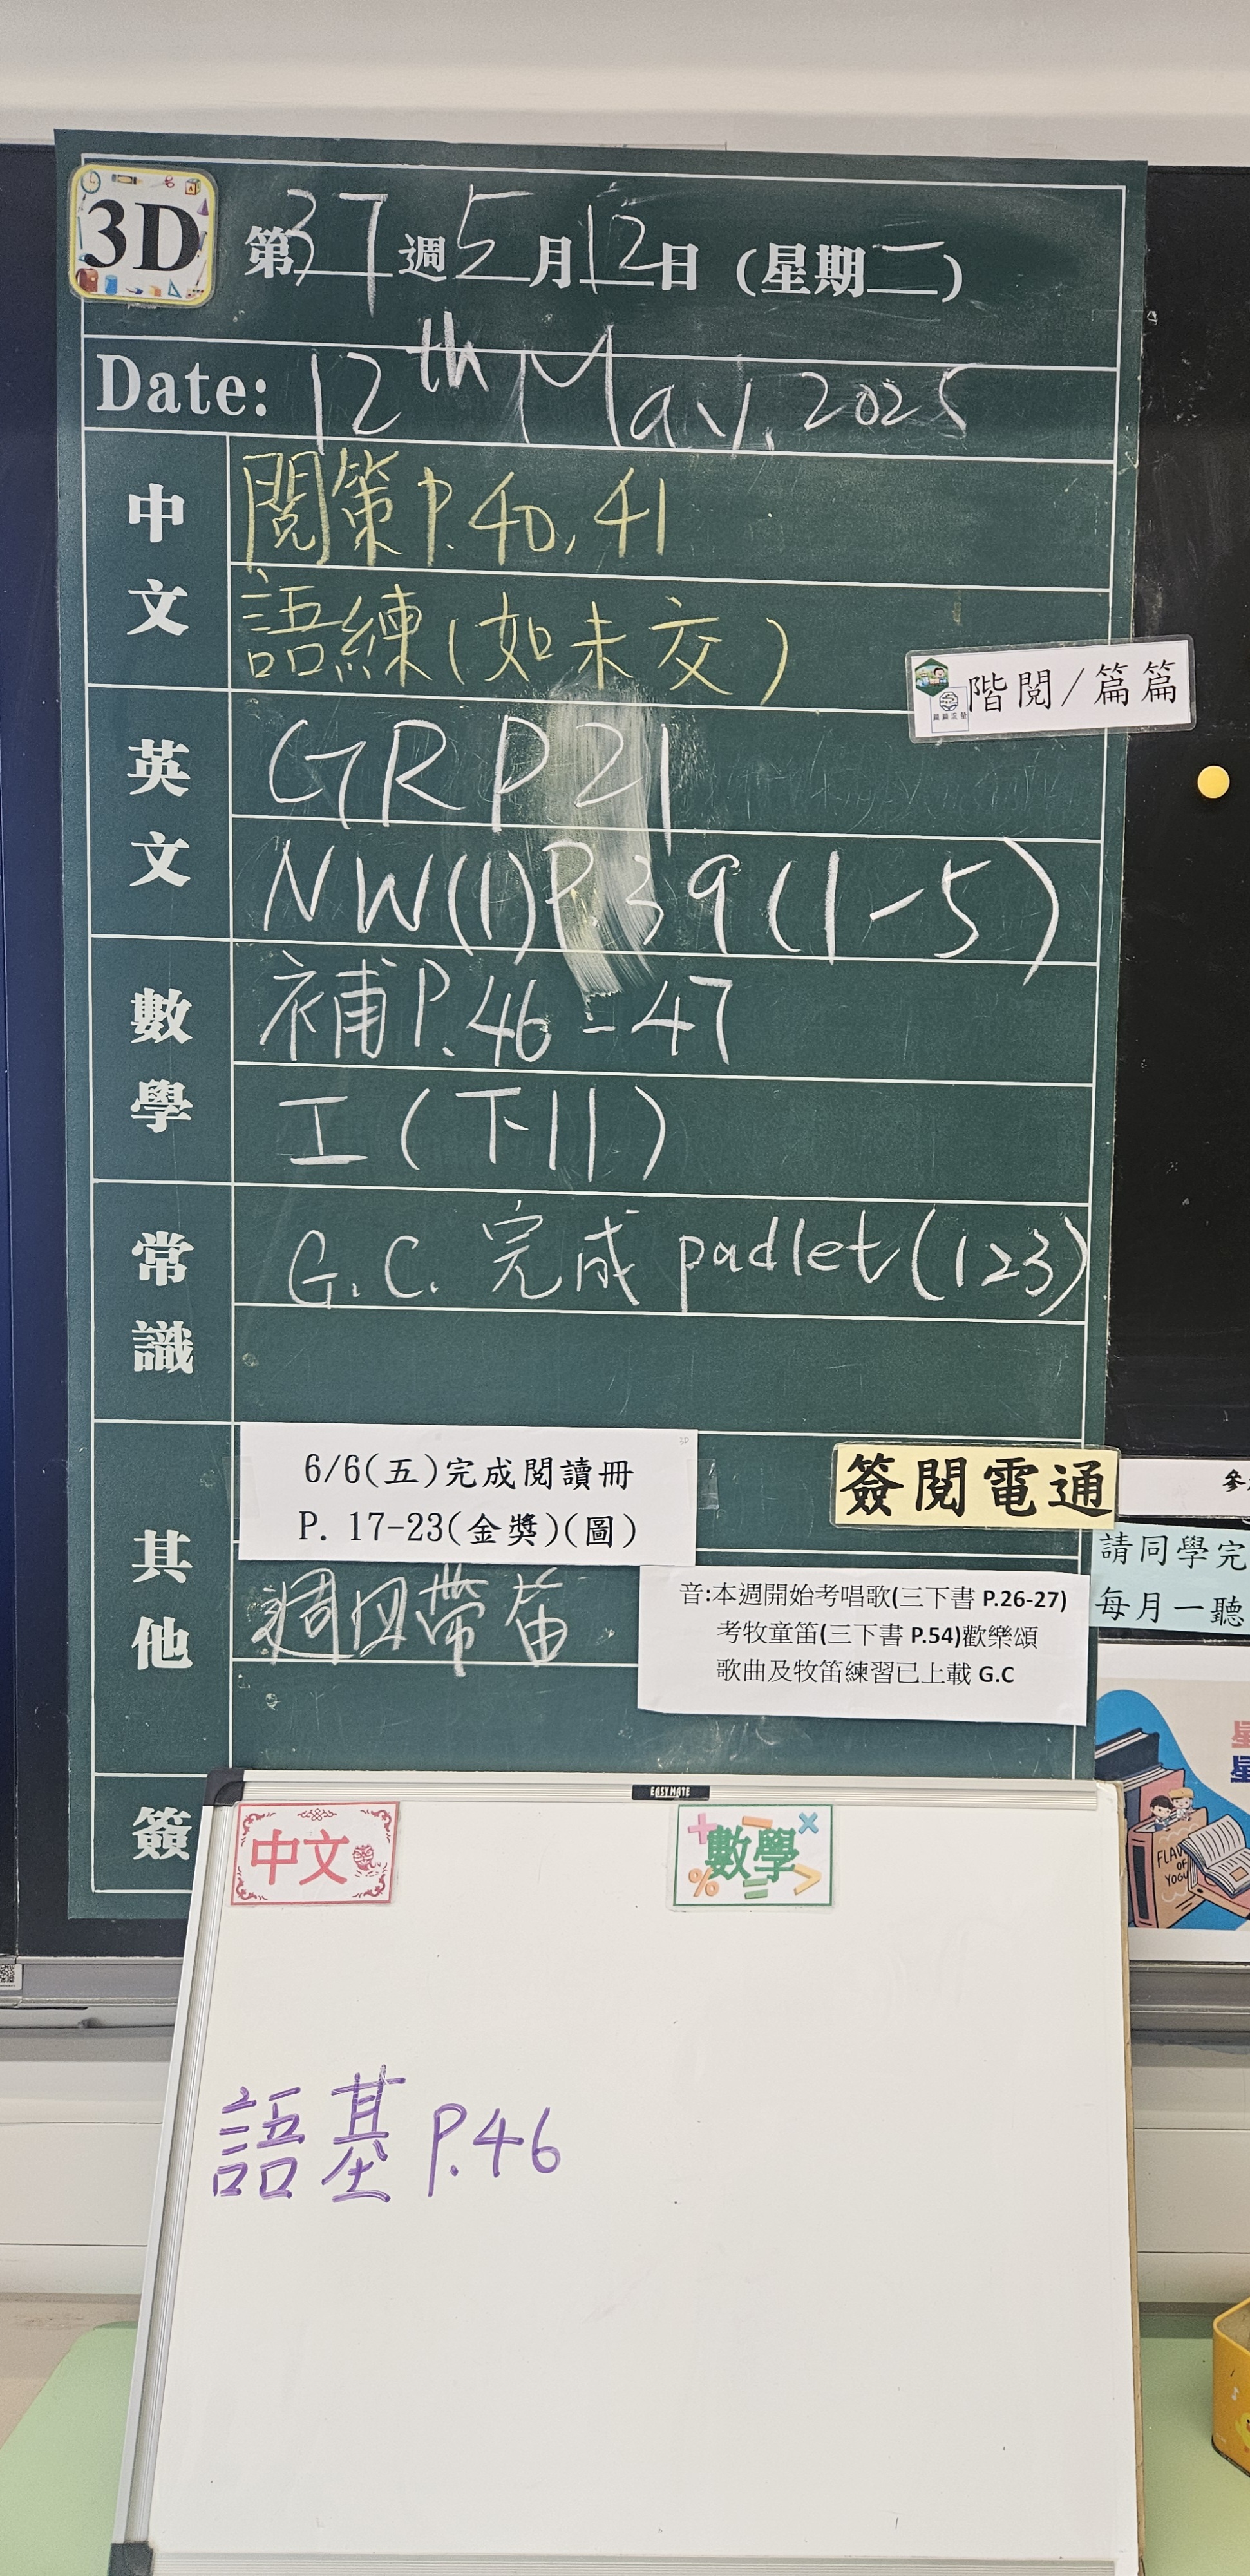 3D
第37週5月12日(星期二)
Date: 12th May, 2025
中文
閱策P.40, 41
語練(如未交)
階閱/篇篇
英文
GR P21
NW(1)P.39(1-5)
數學
補P.46-47
工(下11)
常識
G.C. 完成padlet(123)
其他
6/6(五)完成閱讀冊
P. 17-23(金獎)(圖)
簽閱電通
請同學完
每月一聽
週四帶笛
音:本週開始考唱歌(三下書 P.26-27)
考牧童笛(三下書 P.54)歡樂頌
歌曲及牧笛練習已上載 G.C
簽
EASYMATE
中文
數學
FLAV
OF
YOGU
語基P.46